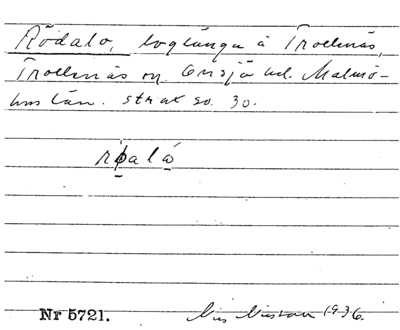 Rödalo, loglänga å Trollenäs,
Trollenäs sn, Onsjö hd. Malmö-
hus län. strax so. 30.
Nr 5721. Nils Nilsson 1936.